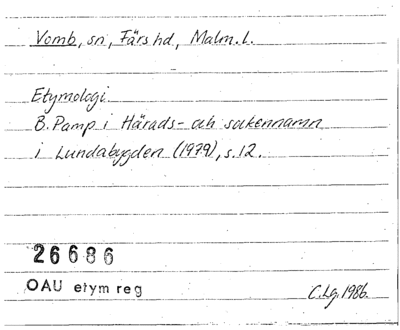 Vomb, sn, Färs hd, Malm. l.
Etymologi
B. Pamp i Härads- och sockennamn
i Lundabygden (1979), s. 12.
26686
OAU etym reg
C.Lg. 1986.